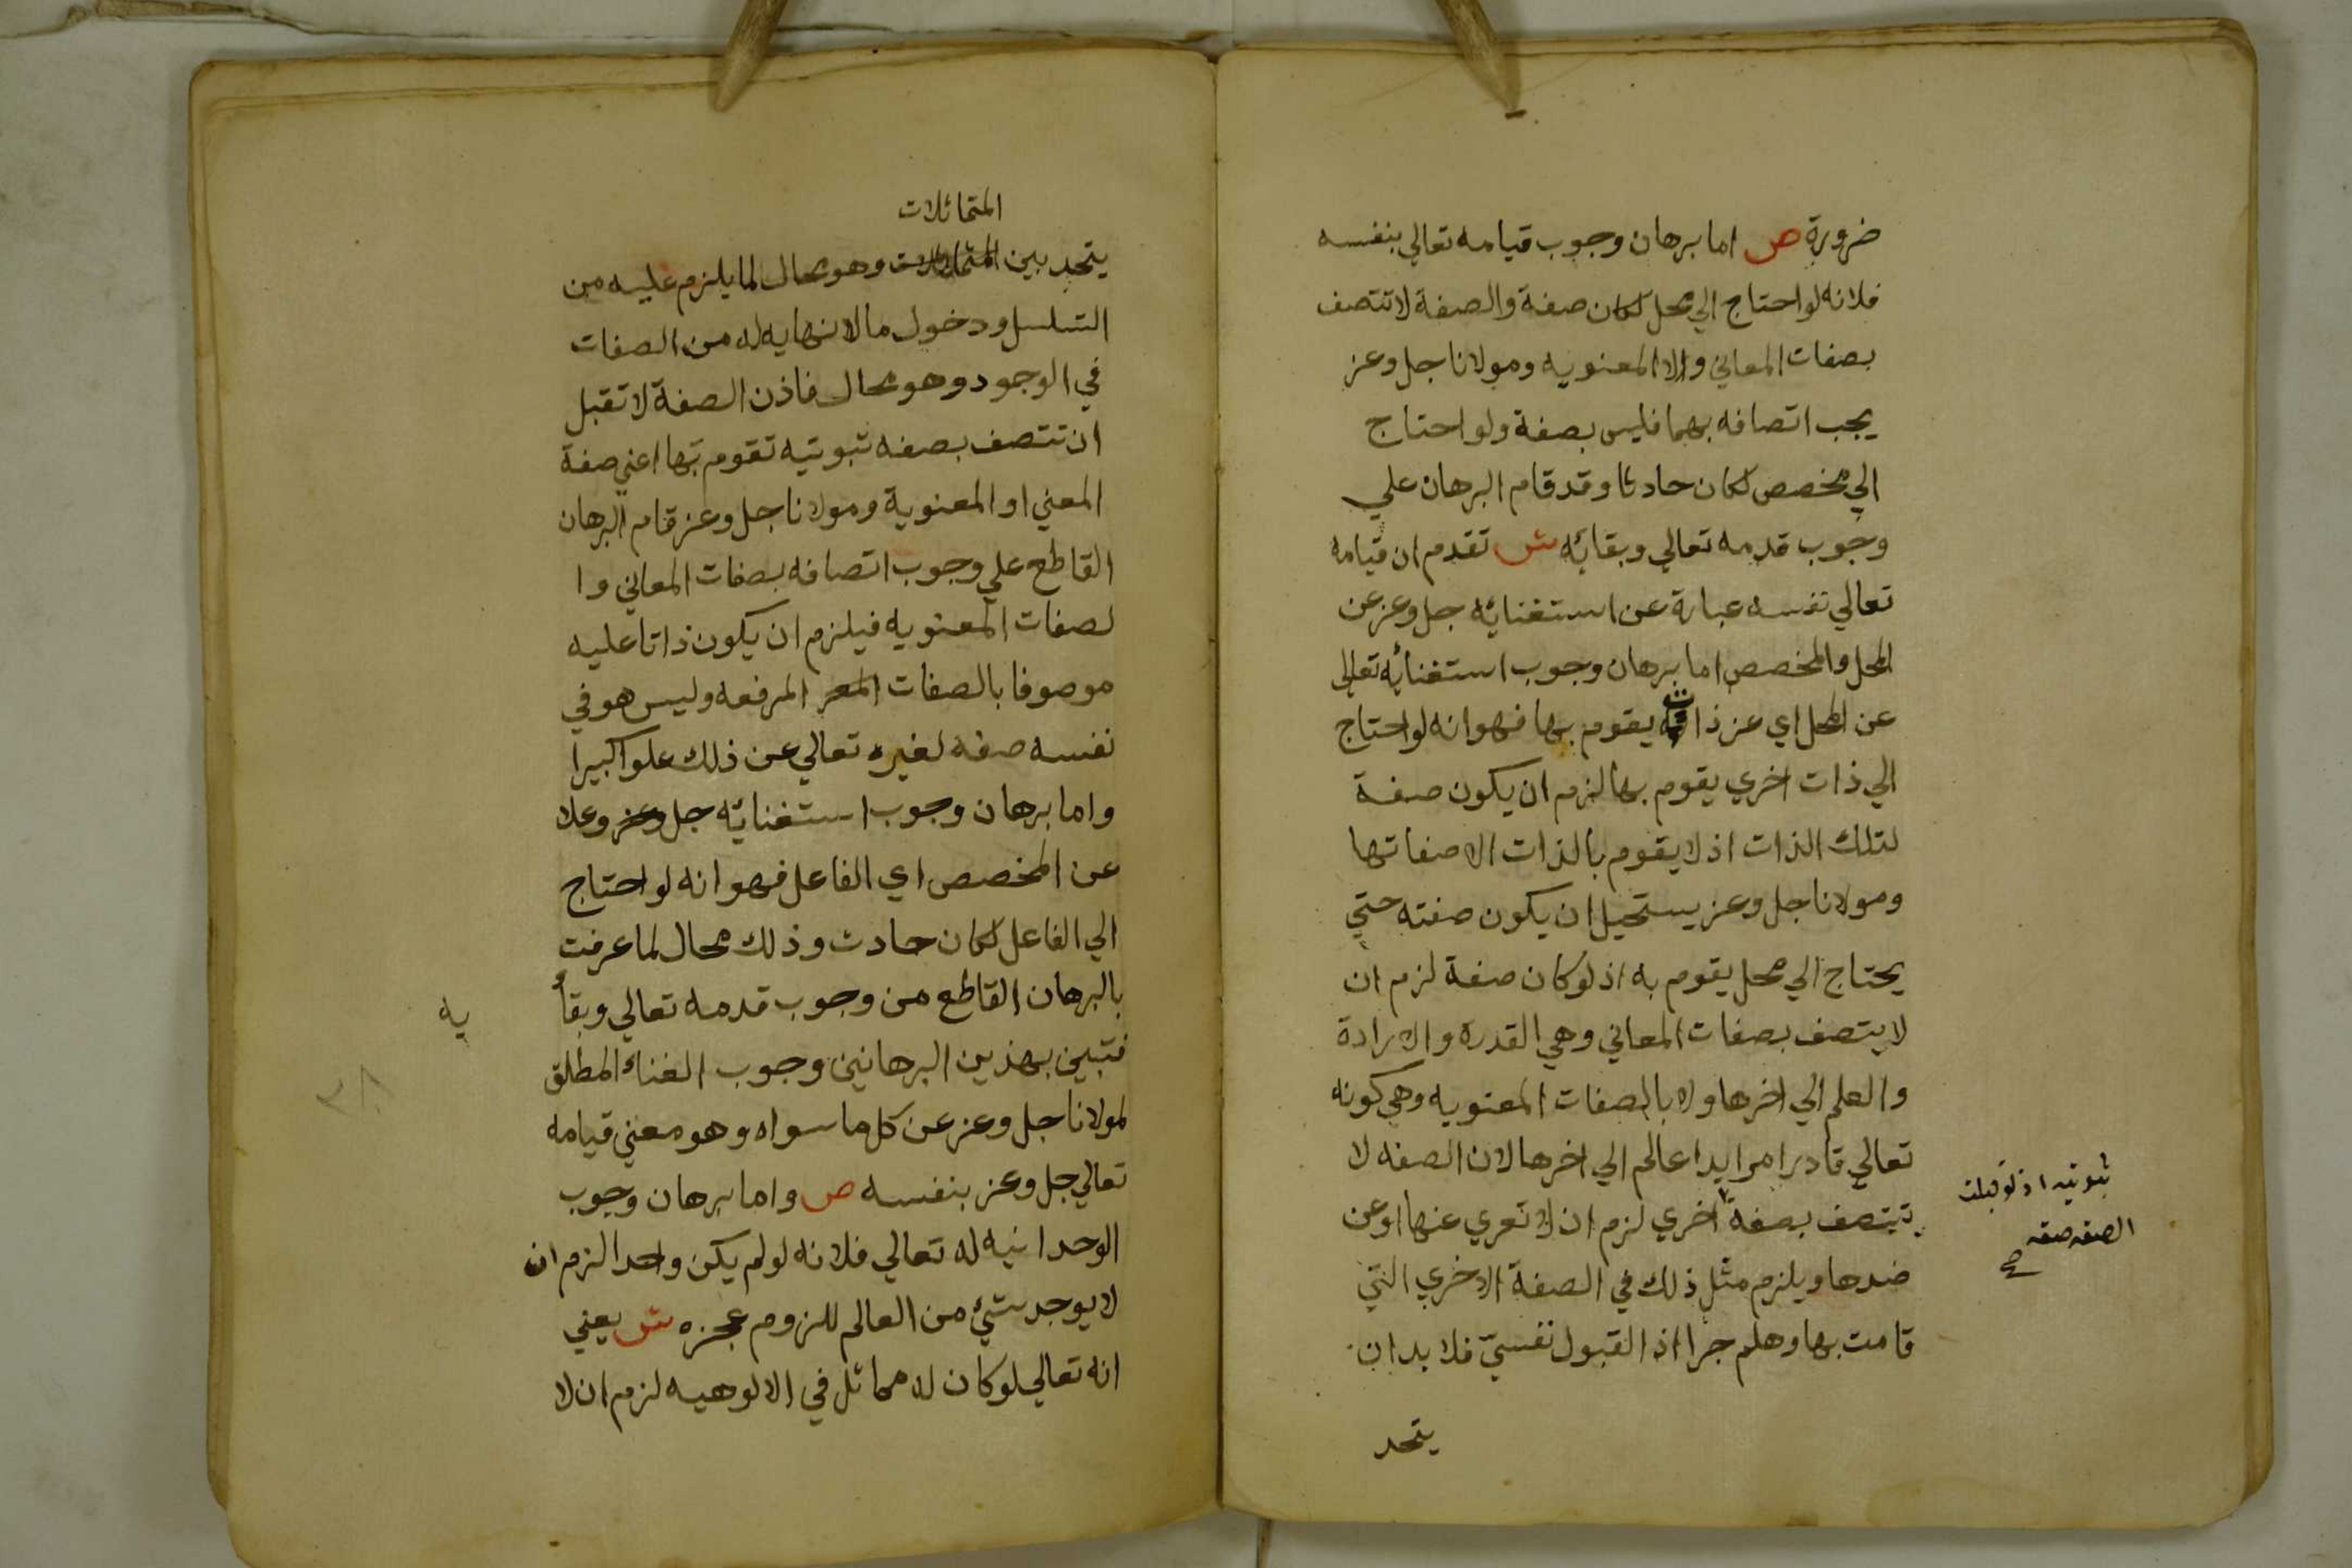 ضرورة ص اما برهان وجوب قيامه تعالي بنفسه
فلانه لو احتاج الي محل لكان صفة والصفة لا تتصف
بصفات المعاني ولا المعنويه ومولانا جل وعز
يجب اتصافه بهما فليس بصفة ولو احتاج
الي مخصص لكان حادثا وقد قام البرهان علي
وجوب قدمه تعالي وبقائه ش تقدم ان قيامه
تعالي نفسه عبارة عن استغنائه جل وعز عن
المحل والمخصص اما برهان وجوب استغنائه تعالي
عن المحل اي عن ذات يقوم بها فهو انه لو احتاج
الي ذات اخري يقوم بها لزم ان يكون صفة
لتلك الذات اذ لا يقوم بالذات الا صفاتها
ومولانا جل وعز يستحيل ان يكون صفته حتي
يحتاج الي محل يقوم به اذ لو كان صفة لزم ان
لا يتصف بصفات المعاني وهي القدرة والارادة
والعلم الي اخرها ولا بالصفات المعنويه وهي كونه
تعالي قادرا مرايدا عالم الي اخرها لان الصفه لا
تتصف بصفة اخري لزم ان لا تعري عنها او عن
ثبوتيه اذ لو قبلت
الصفه صفه
صح
ضدها ويلزم مثل ذلك في الصفة الاخري التي
قامت بها وهلم جرا اذ القبول نفسيّ فلا بد ان
يتحد
المتماثلات
يتحد بين المتماثلات وهو محال لما يلزم عليه من
التسلسل ودخول ما لا نهايه له من الصفات
في الوجود وهو محال فاذن الصفة لا تقبل
ان تتصف بصفه ثبوتيه تقوم بها اعني صفة
المعني او المعنوية ومولانا جل وعز قام البرهان
القاطع علي وجوب اتصافه بصفات المعاني وا
لصفات المعنويه فيلزم ان يكون ذاتا عليه
موصوفا بالصفات المرفعه وليس هو في
نفسه صفة لغيره تعالي عن ذلك علوا كبيرا
واما برهان وجوب استغنائه جل وعز وعلا
عن المخصص اي الفاعل فهو انه لو احتاج
الي الفاعل لكان حادث وذلك محال لما عرفت
بالبرهان القاطع من وجوب قدمه تعالي وبقأ
يه
فتبين بهذين البرهانين وجوب الغناء المطلق
٣٨
لمولانا جل وعز عن كل ما سواه وهو معني قيامه
تعالي جل وعز بنفسه ص واما برهان وجوب
الوحدانيه له تعالي فلانه لو لم يكن واحدا لزم ان
لا يوجد شئ من العالم للزوم عجزه ش يعني
انه تعالي لو كان له مماثل في الالوهيه لزم ان لا